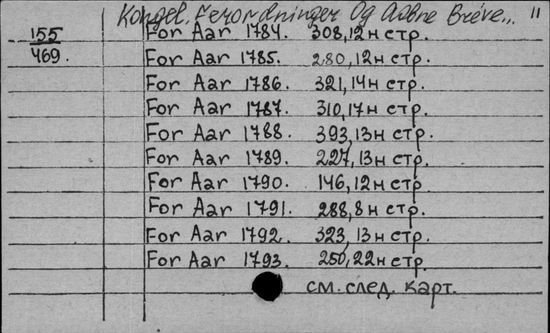 Kongel. Ferordninger Og Aabne Breve... 11
155 For Aar 1784. 308, 12н стр.
469. For Aar 1785. 280, 12н стр.
For Aar 1786. 321, 14н стр.
For Aar 1787. 310, 17н стр.
For Aar 1788. 393, 13н стр.
For Aar 1789. 227, 13н стр.
For Aar 1790. 146, 12н стр
For Aar 1791. 288, 8н стр.
For Aar 1792. 323, 13н стр.
For Aar 1793. 250, 22н стр.
см. след. карт.